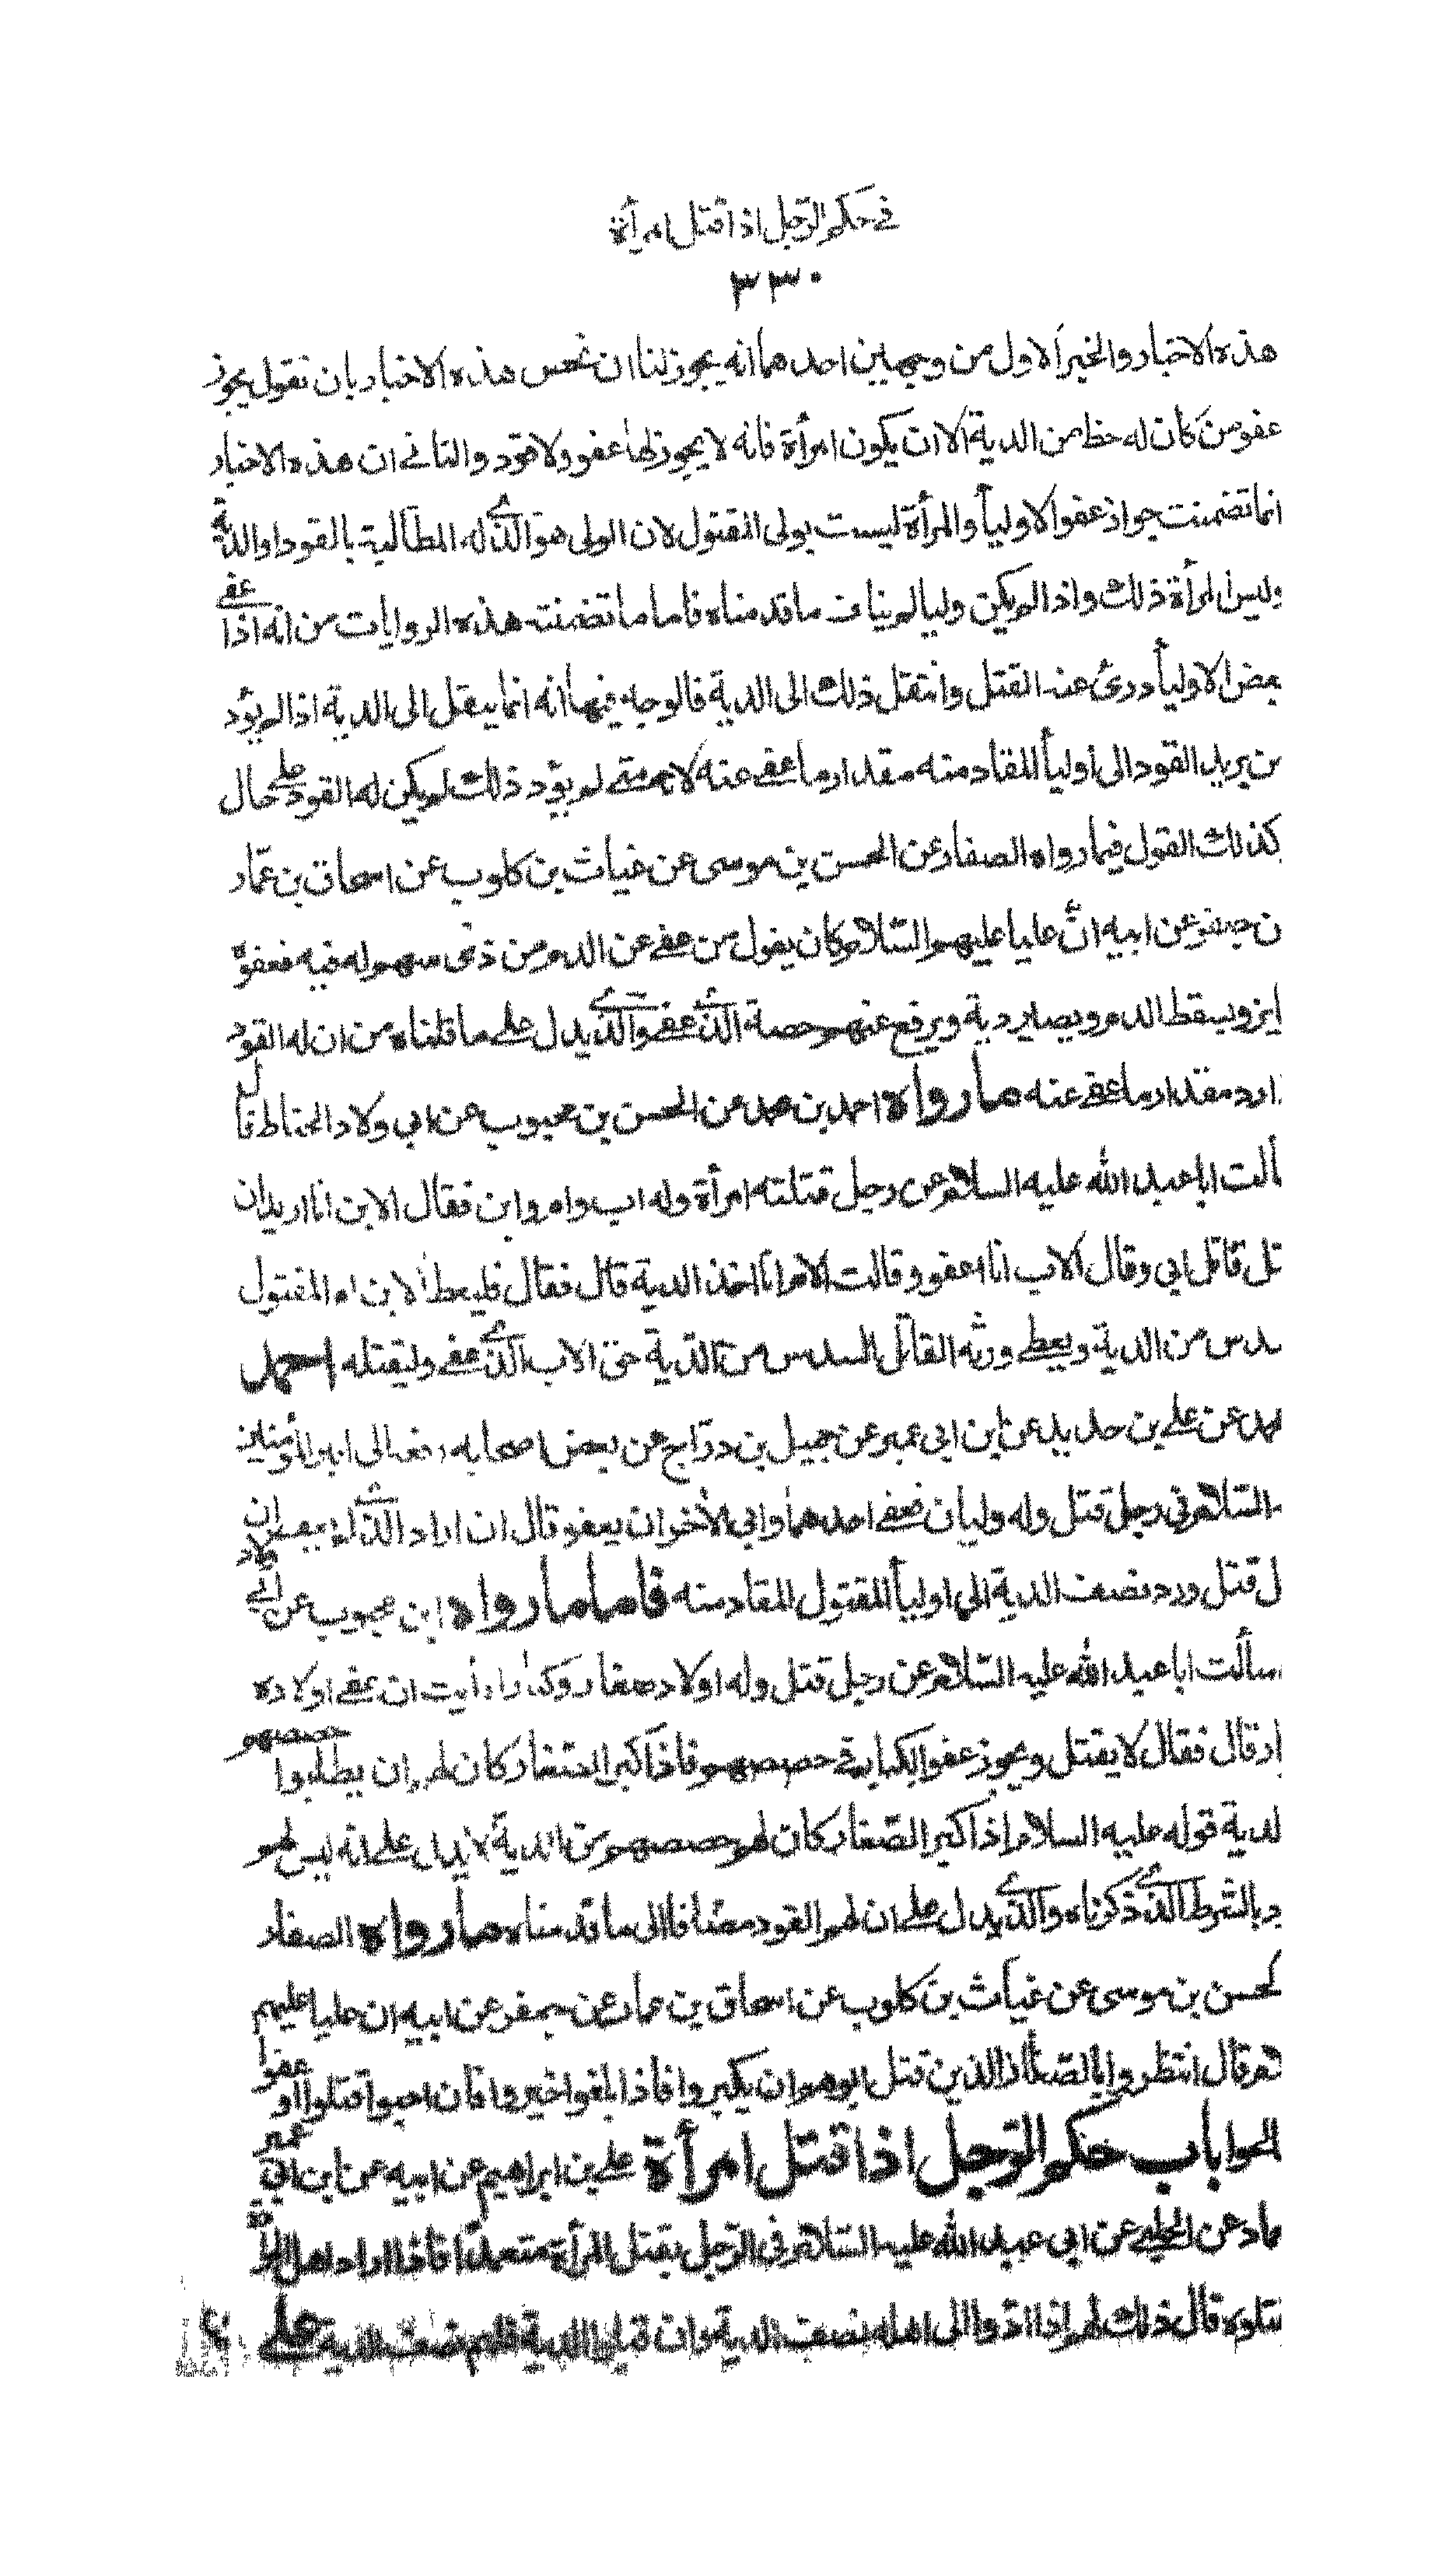 في حكم الرجل اذا قتل امرأة
٣٣٠
هذه الاخبار والخبر الاول من وجهين احدهما انه يجوز لنا ان نخص هذه الاخبار بان نقول يجوز
عفو من كان له حظ من الدية الا ان يكون امرأة فانه لا يجوز لها عفو ولا قود والثاني ان هذه الاخبار
انما تضمنت جواز عفو الاولياء والمرأة ليست بولى المقتول لان الولى هو الذي له المطالبة بالقود او الدية
وليس المرأة ذلك واذا لم يكن وليا لم يناف ما قدمناه فاما ما تضمنت هذه الروايات من انه اذا عفى
بعض الاولياء درئ عنه القتل وانتقل ذلك الى الدية فالوجه فيها انه انما ينتقل الى الدية اذا لم يؤد
من يريد القود الى اولياء المقاد منه مقدار ما عفى عنه لانه متى لم يؤد ذلك لم يكن له القود على حال
كذلك القول فيما رواه الصفار عن الحسن بن موسى عن غياث بن كلوب عن اسحاق بن عمار
ن جعفر عن ابيه ان عليا عليهم السلام كان يقول من عفى عن الدم من ذى سهم له فيه فعفوه
ايز ويسقط الدم ويصير دية ويرفع عنهم حصة الذي عفى والذي يدل على ما قلناه من ان له القود
ا رد مقدار ما عفى عنه ما رواه احمد بن محمد عن الحسن بن محبوب عن ابي ولاد الحناط قال
سألت ابا عبد الله عليه السلام عن رجل قتلته امرأة وله اب وام وابن فقال الابن انا اريد ان
تل قاتل ابي وقال الاب انا اعفو وقالت الام انا اخذ الدية قال فقال فليعط الابن ام المقتول
سدس من الدية ويعطى ورثة القاتل السدس من الدية حق الاب الذي عفى وليقتله احمد
محمد عن على بن حديد عن ابن ابي عمير عن جميل بن دراج عن بعض اصحابه رفعه الى امير المؤمنين
السلام في رجل قتل وله وليان فعفى احدهما وابي الاخر ان يعفو قال ان اراد الذي لم يعف ان
ل قتل ورد نصف الدية الى اولياء المقتول المقاد منه فاما ما رواه ابن محبوب عن ابي ولاد
سألت ابا عبد الله عليه السلام عن رجل قتل وله اولاد صغار وكبار ارأيت ان عفى اولاده
ار قال فقال لا يقتل ويجوز عفو الكبار في حصصهم فاذا كبر الصغار كان لهم ان يطلبوا حصصهم
لدية قوله عليه السلام اذا كبر الصغار كان لهم حصصهم من الدية لا يدل على انه ليس لهم
د بالشرط الذي ذكرناه والذي يدل على ان لهم القود مضافا الى ما قدمناه ما رواه الصفار
لحسن بن موسى عن غياث بن كلوب عن اسحاق بن عمار عن جعفر عن ابيه ان عليا عليهم
لام قال انتظروا بالصغار الذين قتل ابوهم ان يكبروا فاذا بلغوا خيروا فان احبوا قتلوا او عفوا
الحوا باب حكم الرجل اذا قتل امرأة على بن ابراهيم عن ابيه عن ابن ابي عمير
ماد عن الحلبي عن ابي عبد الله عليه السلام في الرجل يقتل المرأة متعمدا فاذا اراد اهل
قتلوه قال ذلك لهم اذا ادوا الى اهله نصف الدية وان قبلوا الدية فلهم نصف الدية